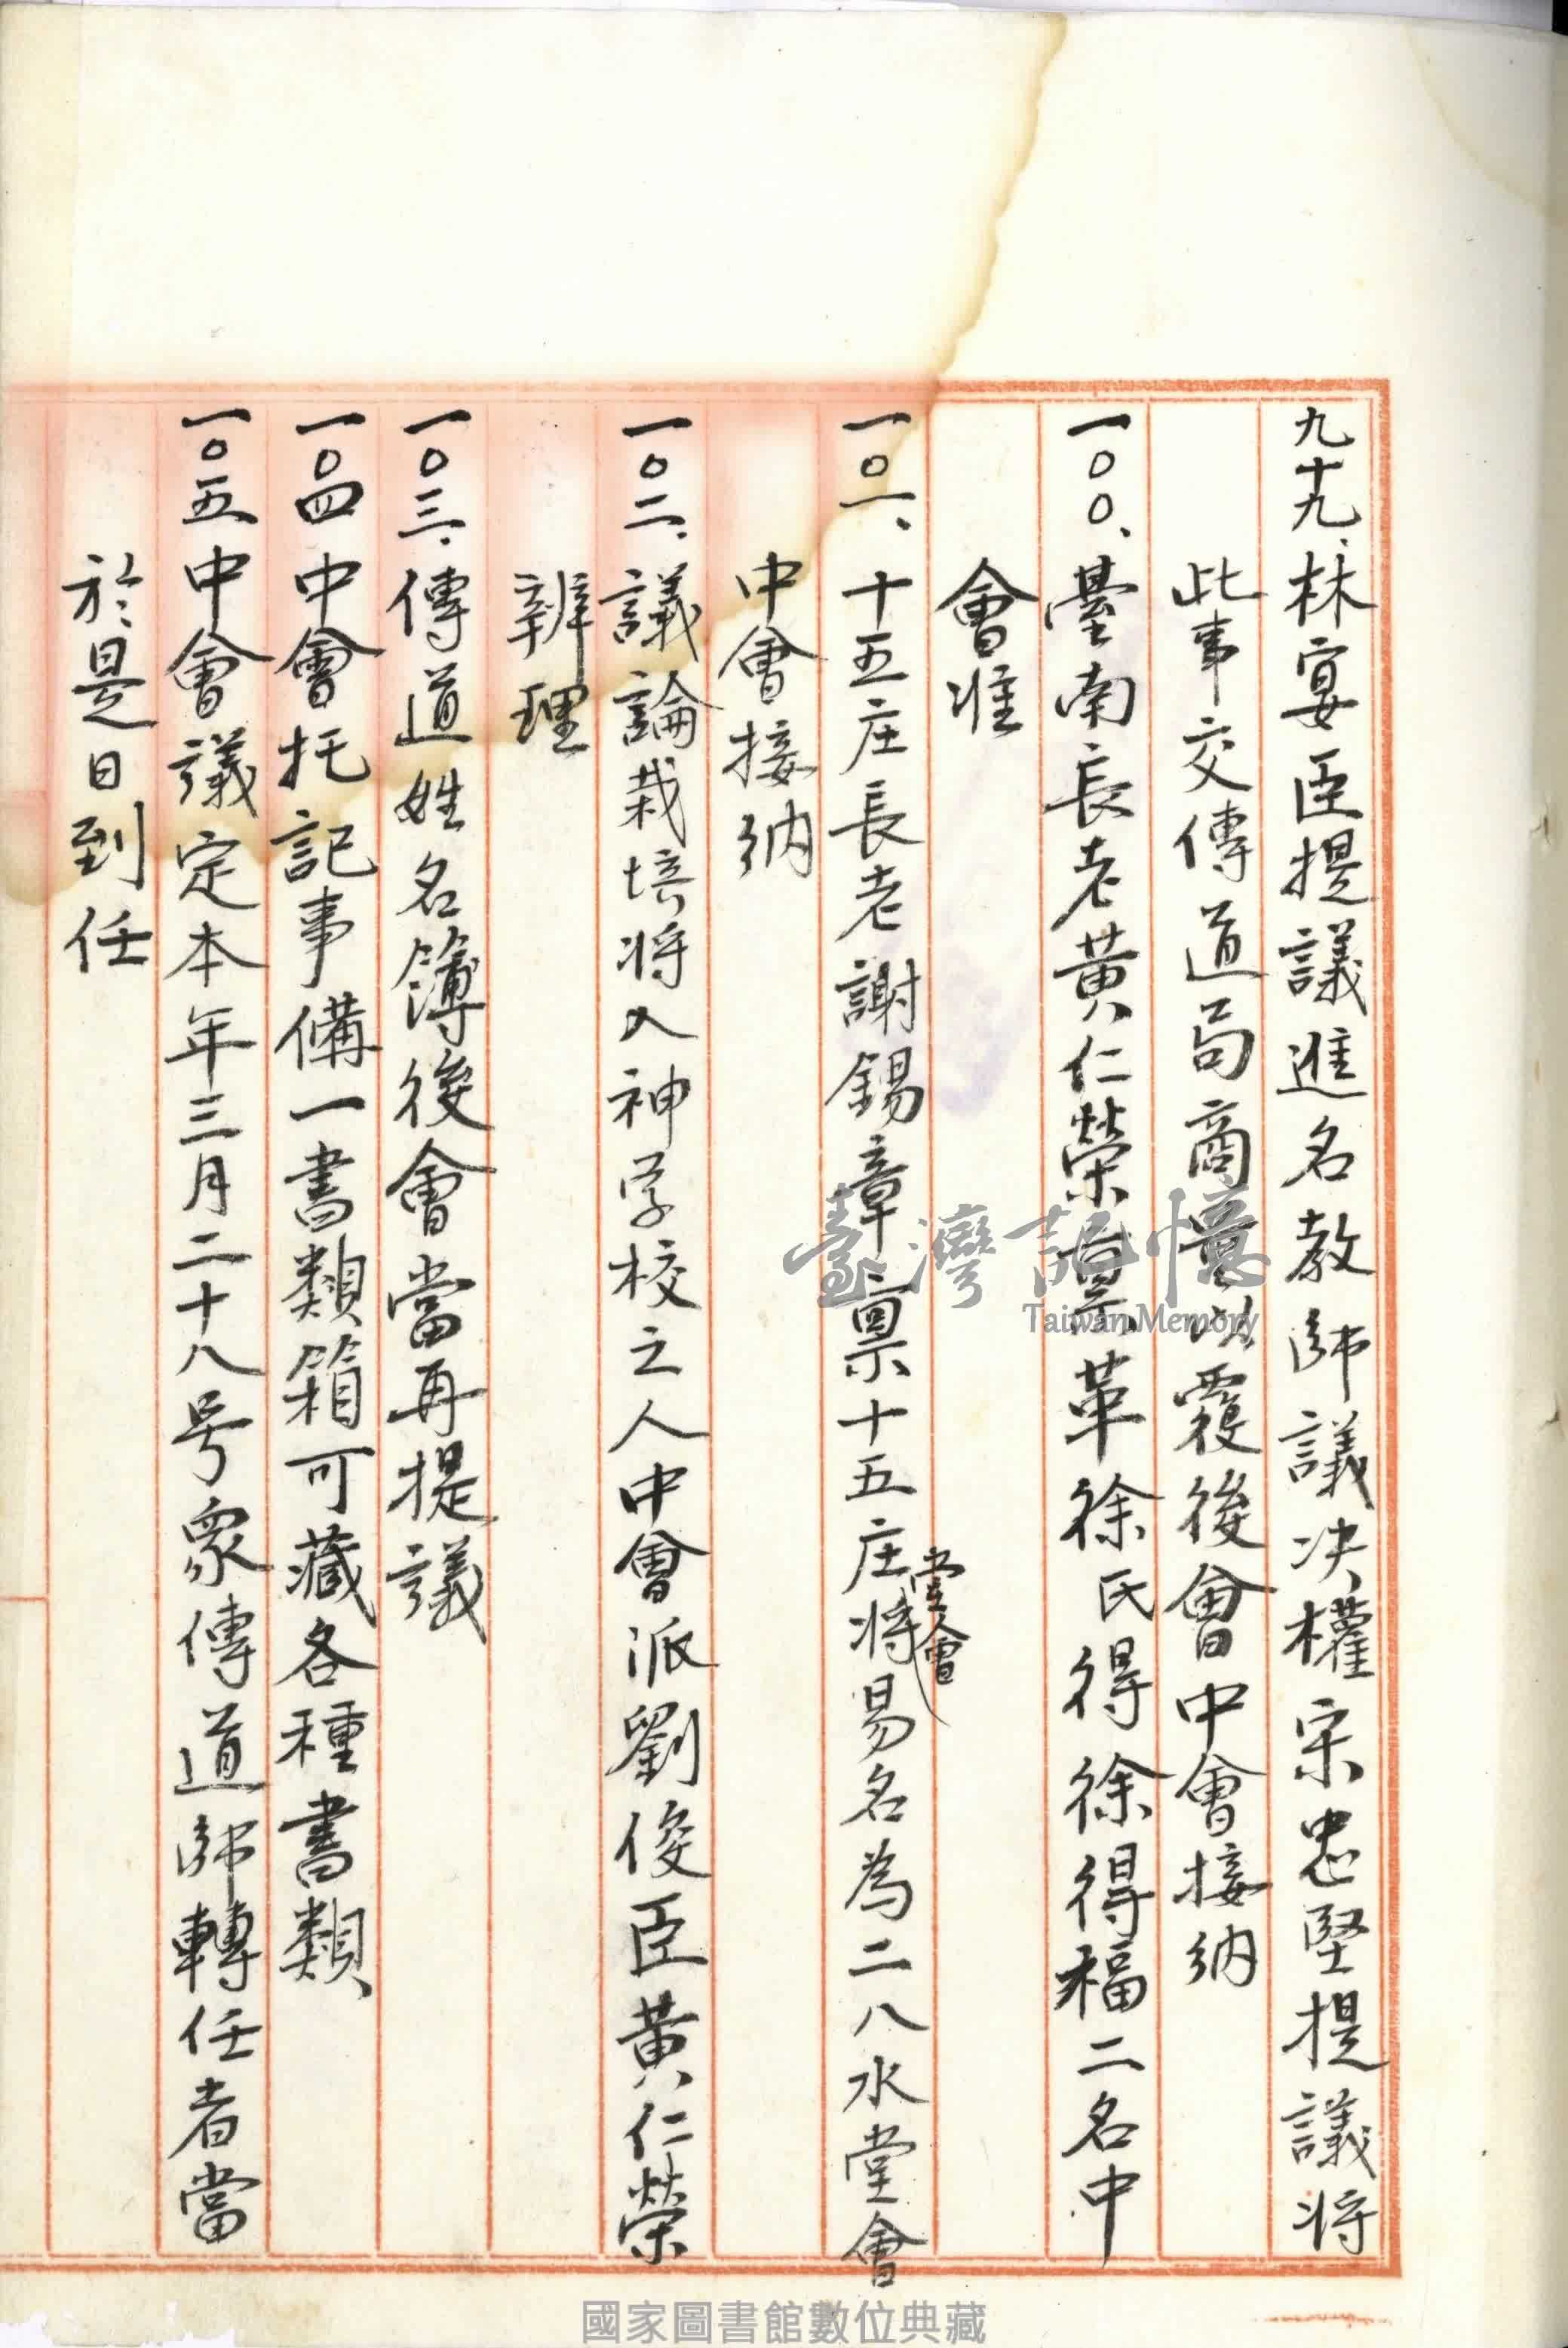 九十九、林宴臣提議進名教師議决權宋忠堅提議将
此事交傳道局商量以覆後會中會接納
一〇〇、臺南長老黃仁榮稟革徐氏得徐得福二名中
會准
一〇一、十五庄長老謝錫章稟十五庄将堂會易名為二八水堂會
中會接納
一〇二、議論栽培将入神学校之人中會派劉俊臣黃仁榮
辦理
一〇三、傳道姓名簿後會當再提議
一〇四中會托記事備一書類箱可藏各種書類
一〇五中會議定本年三月二十八号眾傳道師轉任者當
於是日到任
臺灣記憶
Taiwan Memory
國家圖書館數位典藏